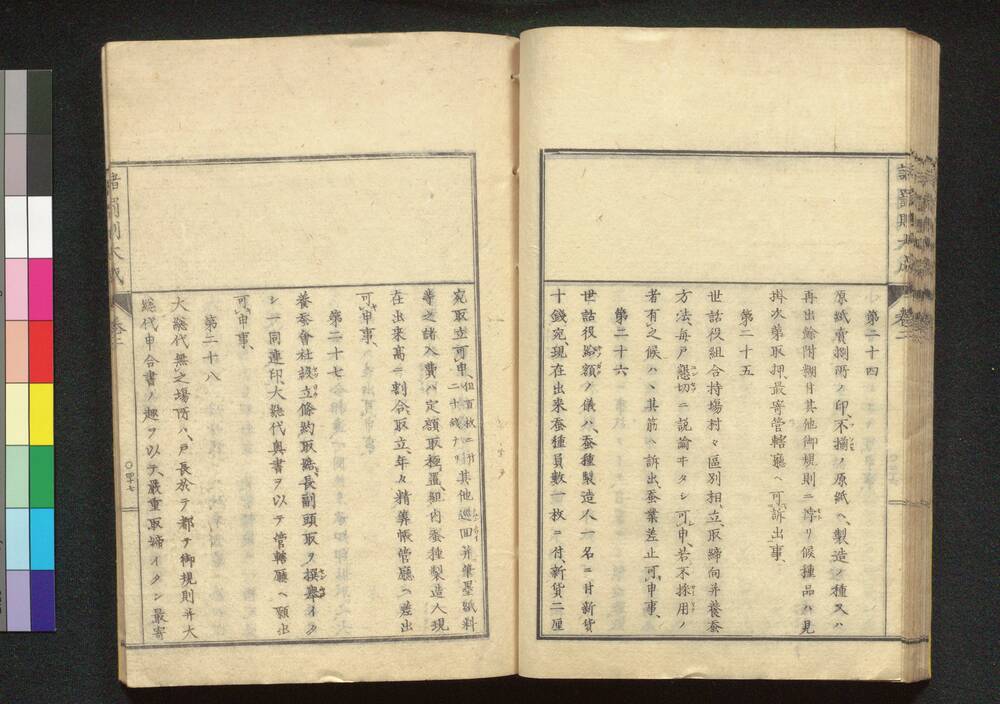 第二十四
原紙賣捌所ノ印、不揃ノ原紙ヘ、製造ノ種又ハ
再出餘附糊付其他御規則ニ悖リ候種品ハ見
掛次第取押、最寄管轄廳ヘ可訴出事、
第二十五
世話役組合持場村々區別相立取締向并養蚕
方法、毎戸懇切ニ説諭イタシ可申、若不採用ノ
者有之候ハヽ其筋ヘ訴出、蚕業差止可申事、
第二十六
世話役給額ノ儀ハ、蚕種製造人一名ニ付新貨
十錢宛現在出来蚕種員數一枚ニ付、新貨二厘
宛取立可申、但百枚ニ付二十錢ナリ其他巡回并筆墨紙料
等之諸入費ハ定額取極置、組内蚕種製造人現
在出来高ニ割合、取立、年々精算帳管廳ヘ差出
可申事、
第二十七
養蚕會社設立條約取極、長副頭取ヲ撰擧イタ
シ一同連印、大總代奥書ヲ以テ管轄廳ヘ願出
可申事、
第二十八
大總代無之場所ハ、戸長於テ都テ御規則并大
總代申合書ノ趣ヲ以テ、嚴重取締イタシ最寄
諸罰則大成
卷二
〇四十七